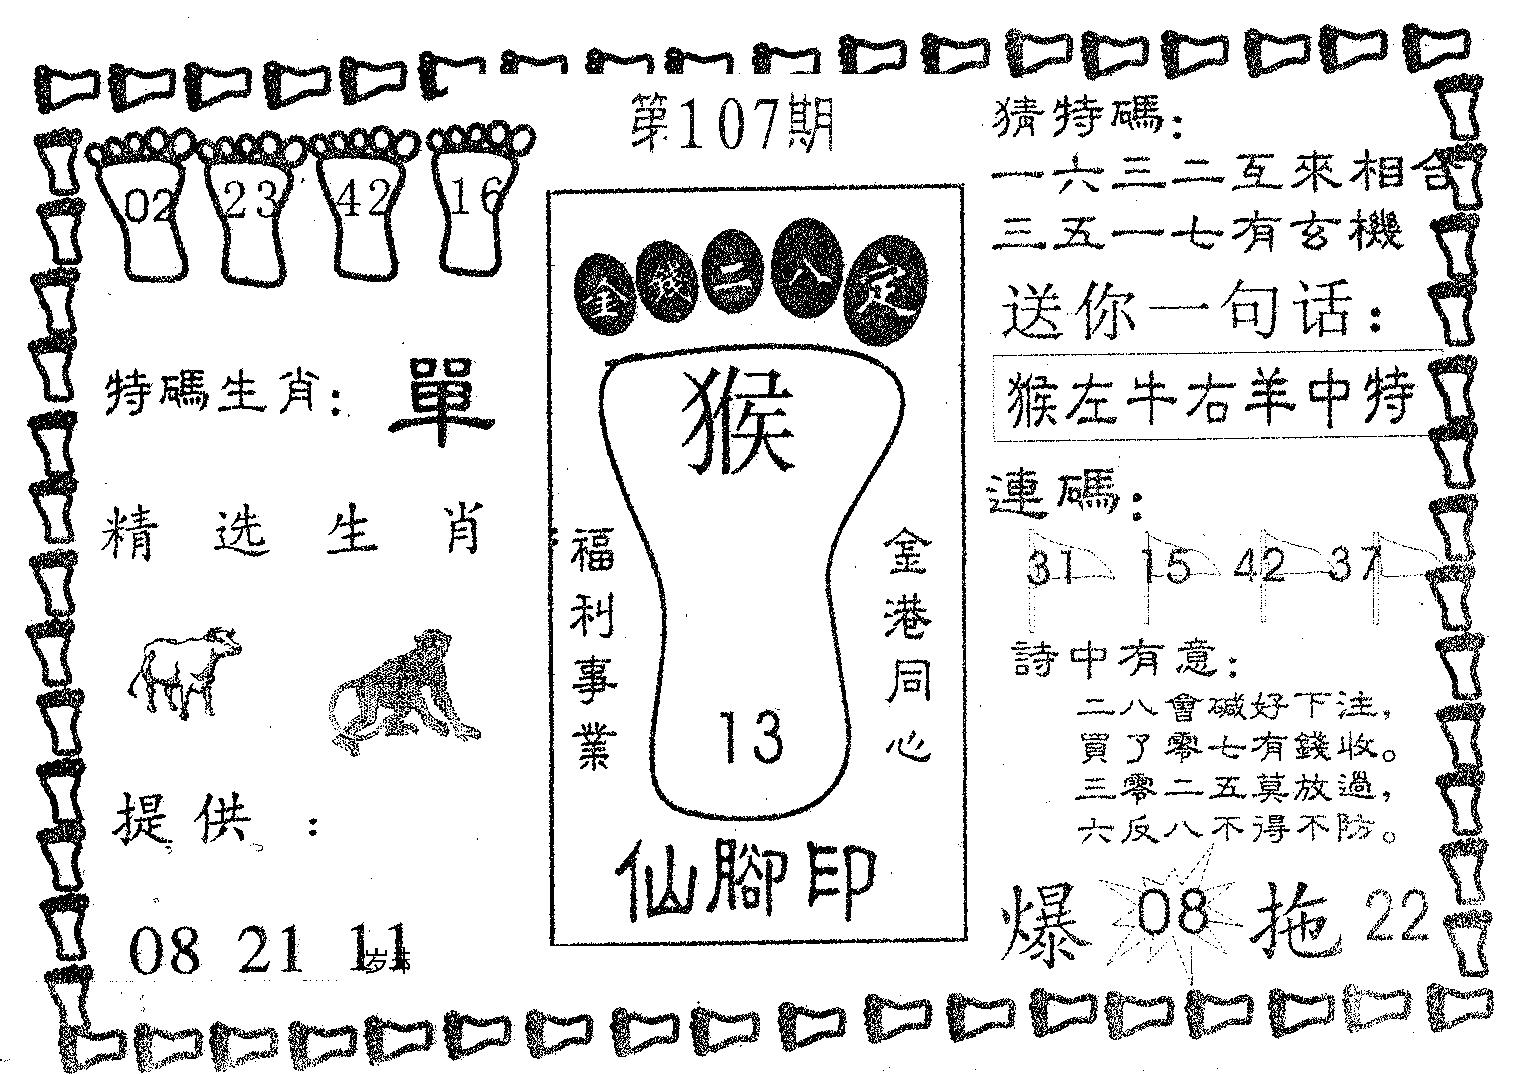 第107期
02 23 42 16
特碼生肖：單
精选生肖
提供：
08 21 11
金發二八定
猴
13
福利事業
金港同心
仙腳印
猜特碼：
一六三二互來相合
三五一七有玄機
送你一句话：
猴左牛右羊中特
連碼：
31 15 42 37
詩中有意：
二八會碱好下注，
買了零七有錢收。
三零二五莫放過，
六反八不得不防。
爆 08 拖 22